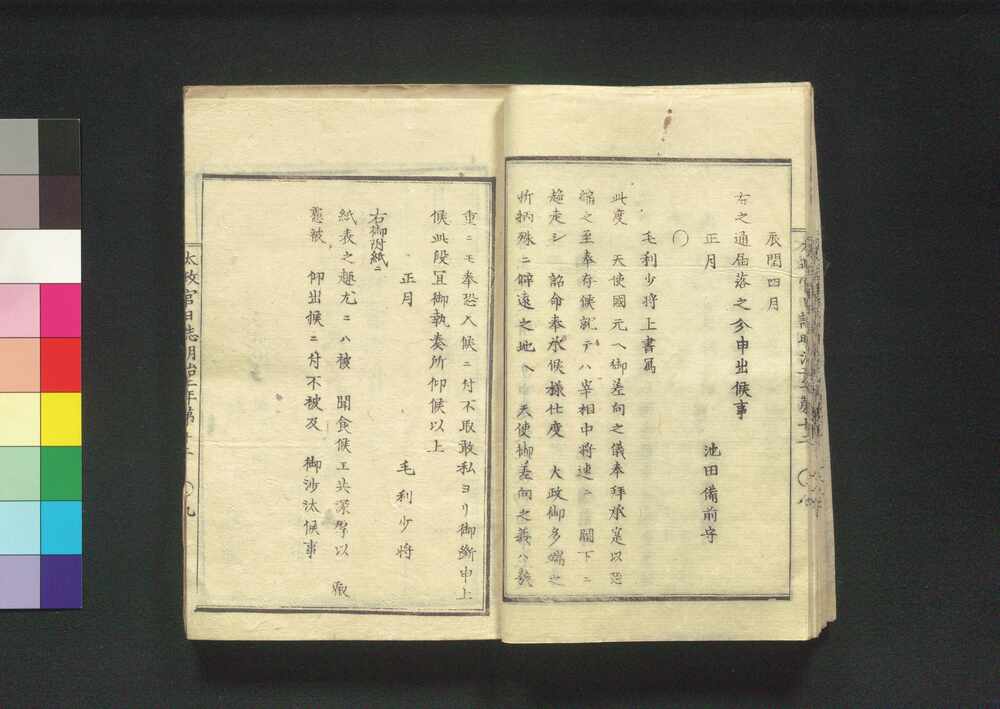 辰閏四月
右之通届落之分申出候事
正月　池田備前守
〇
毛利少将上書写
此度　天使國元ヘ御差向之儀奉拜承寔以恐
縮之至奉存候就テハ宰相中将速ニ　闕下ニ
趨走シ　詔命奉承候様仕度　大政御多端之
折柄殊ニ僻遠之地ヘ　天使御差向之義ハ幾
重ニモ奉恐入候ニ付不取敢私ヨリ御斷申上
候此段宜御執奏所仰候以上
正月
毛利少将
右御附紙ニ
紙表之趣尤ニハ被　聞食候エ共深厚以　叡
慮被　仰出候ニ付不被及　御沙汰候事
太政官日誌明治二年第十二　〇九